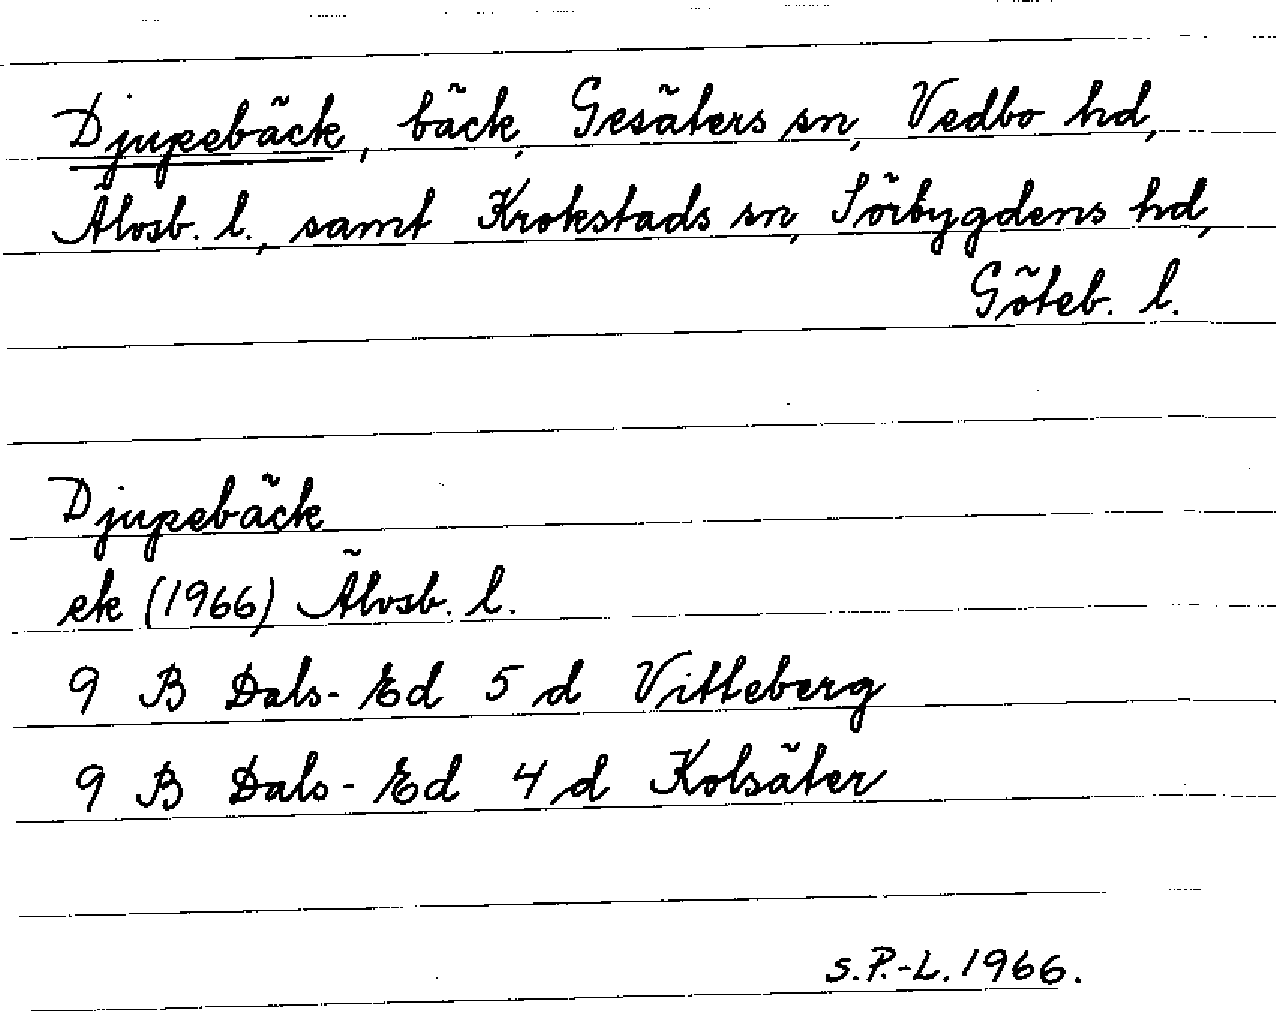 Djupebäck, bäck, Gesäters sn, Vedbo hd,
Älvsb. l., samt Krokstads sn, Sörbygdens hd,
Göteb. l.
Djupebäck
ek (1966) Älvsb. l.
9 B Dals-Ed 5 d Vitteberg
9 B Dals-Ed 4 d Kolsäter
S.P.-L. 1966.